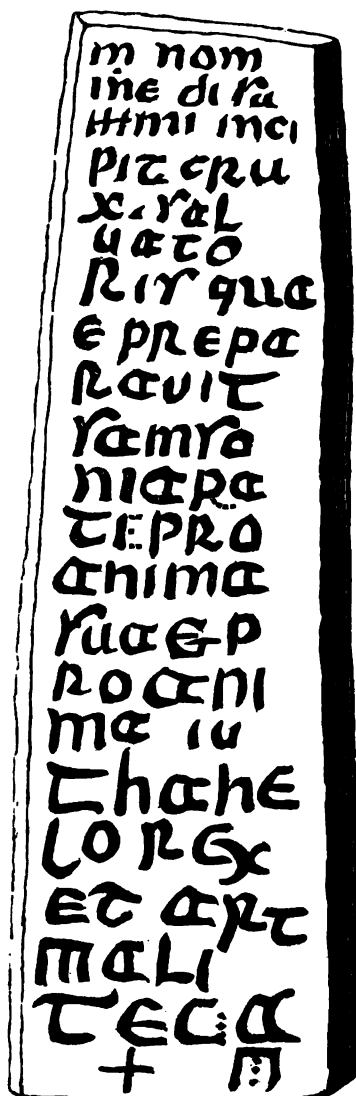 in nom
ine di su
mmi inci
pit cru
x sal
uato
ris qua
e prepa
rauit
samso
ni apa
te pro
anima
sua et p
ro ani
ma iu
thahe
lo rex
et art
mali
teca
+ m